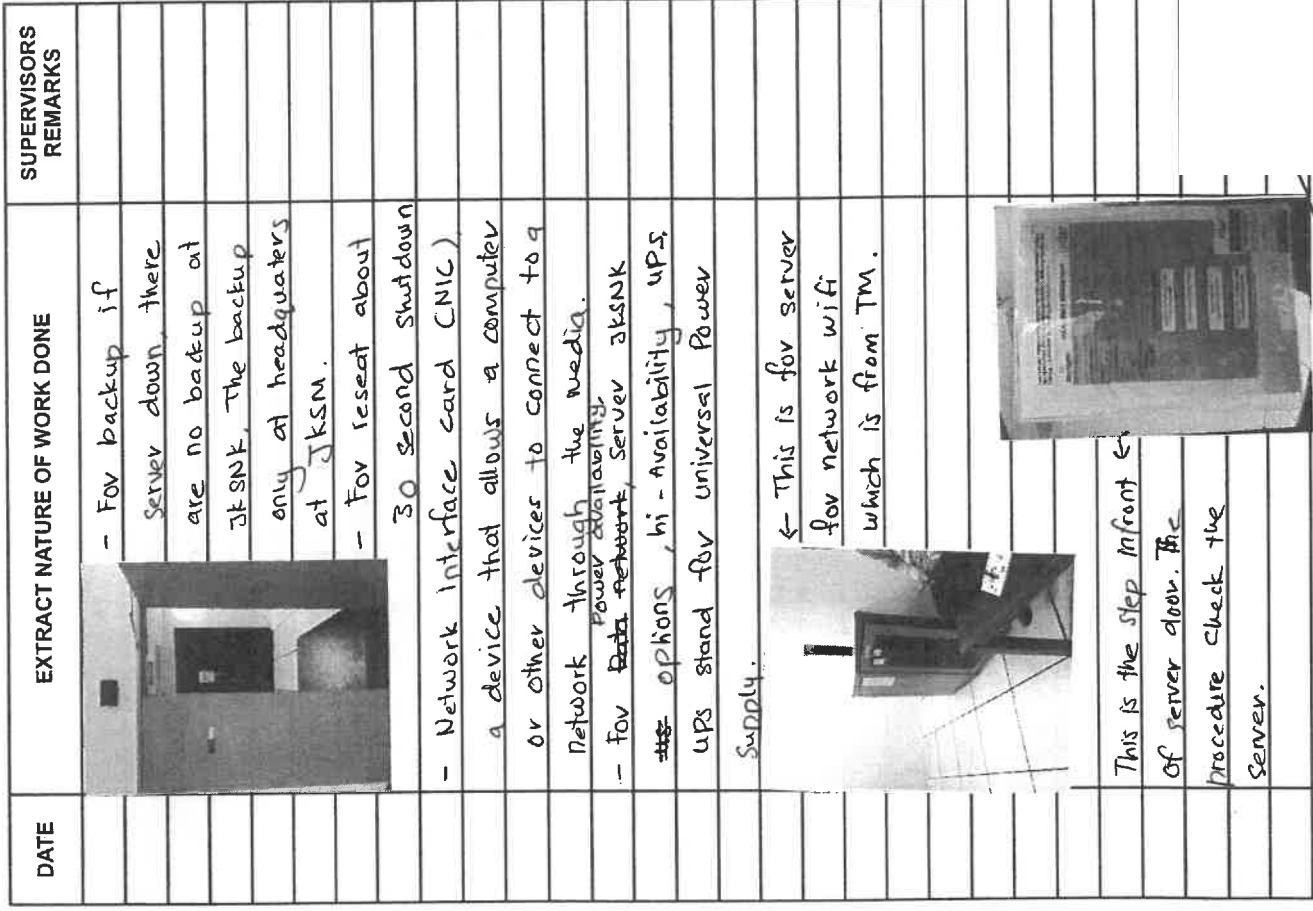 DATE
EXTRACT NATURE OF WORK DONE
SUPERVISORS
REMARKS
- For backup if
server down, there
are no backup at
JKSNK. The backup
only at headquaters
at JKSM.
- For reseat about
30 second shutdown
- Network Interface card CNIC)
a device that allows a computer
or other devices to connect to a
network through the media.
Power availability,
- For Data network, Server JKSNK
options, hi - Availability, UPS,
UPS stand for universal Power
Supply.
← This is for server
for network wifi
which is from TM.
This is the step infront ←
of server door. The
procedure check the
server.